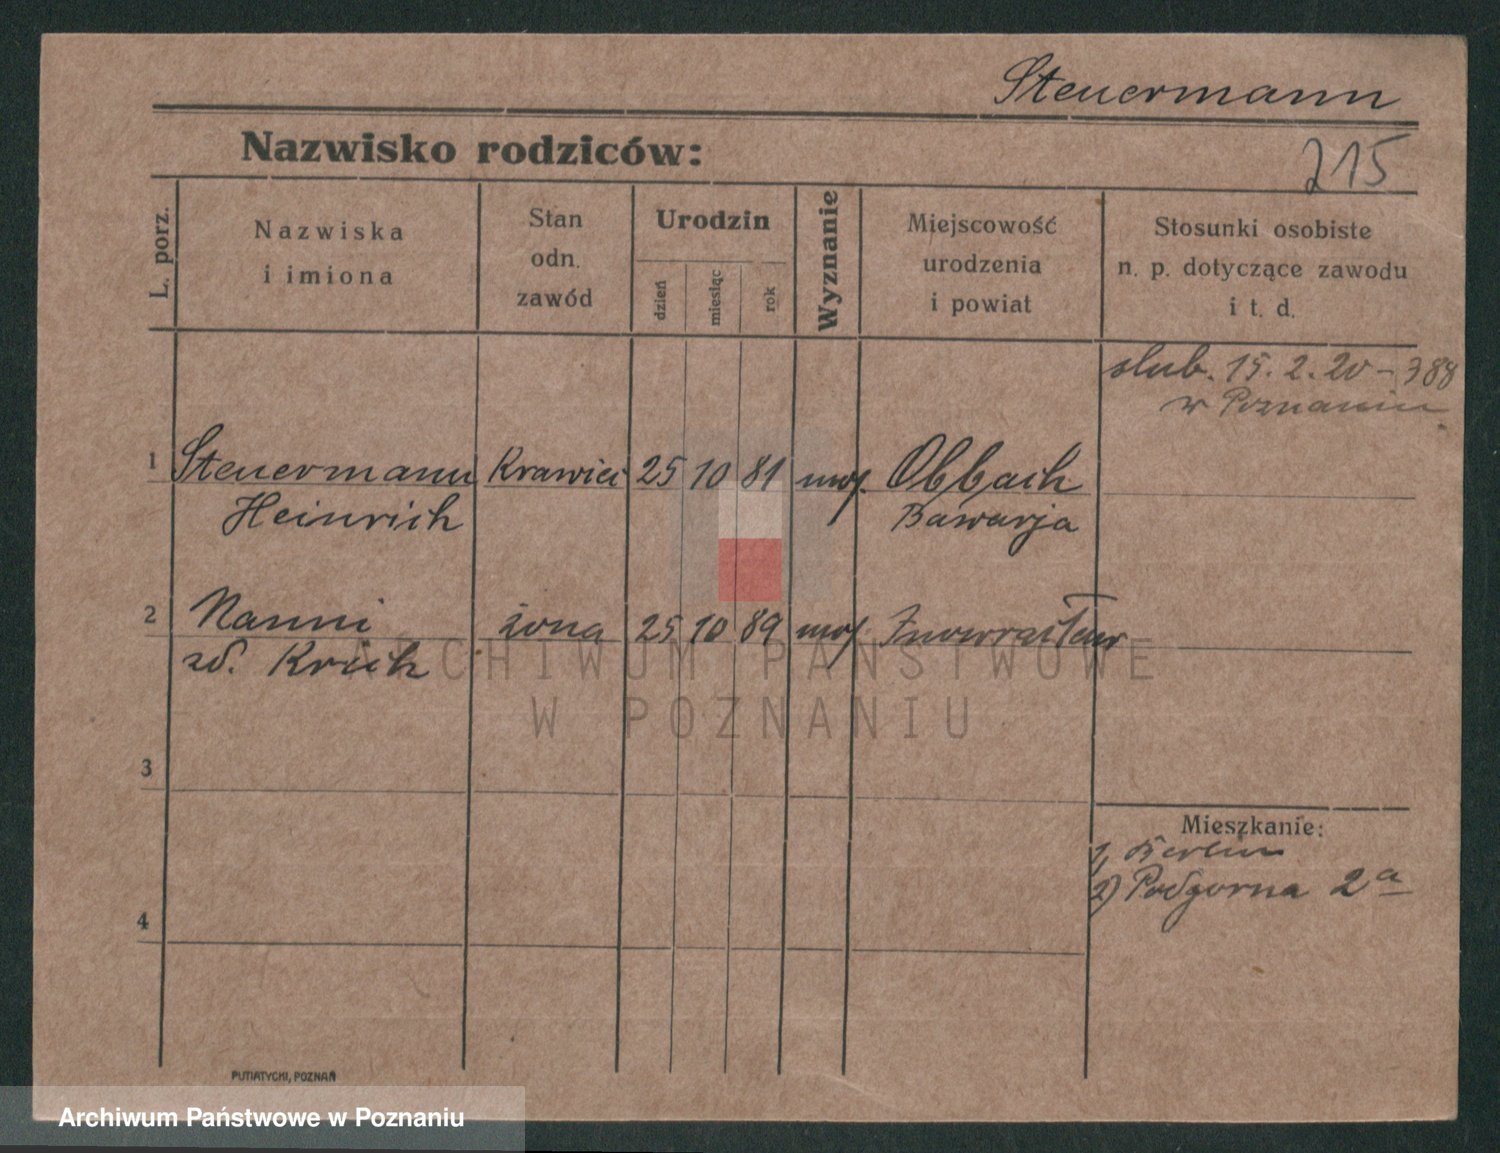 Steuermann
Nazwisko rodziców:
215
L. porz.
Nazwiska
i imiona
Stan
odn.
zawód
Urodzin
dzień
miesiąc
rok
Wyznanie
Miejscowość
urodzenia
i powiat
Stosunki osobiste
n. p. dotyczące zawodu
i t. d.
slub. 15. 2. 20 – 388
w Poznaniu
1 Steuermann Krawiec 25 10 81 moj. Obbach
Heinrich Bawarja
2 Nanni żona 25 10 89 moj Inowrocław
zd.
ARCHIWUM PAŃSTWOWE
W POZNANIU
3
Mieszkanie:
1, Berlin
2) Podgorna 2a
4
PUTIATYCKI, POZNAŃ
Archiwum Państwowe w Poznaniu